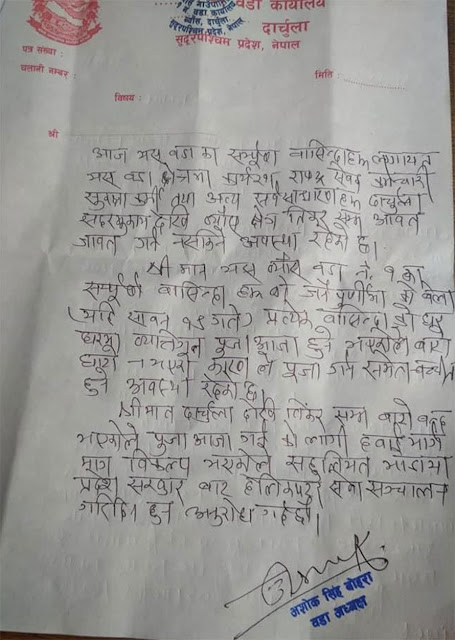 वडा कार्यालय
दार्चुला
सुदूरपश्चिम प्रदेश, नेपाल
पत्र संख्या :
चलानी नम्बर :
मिति :
विषय :
श्री
आज यस वडा का सम्पूर्ण बासिन्दाहरू लगायत
यस वडा मा कार्यरत राष्ट्र सेवक कर्मचारी
सुरक्षा कर्मी तथा अन्य सर्वसाधारण हरू दार्चुला
सदरमुकाम देखि ब्याँस क्षेत्र तिंकर सम्म आवत
जावत गर्न नसकिने अवस्था रहेको छ।
श्रीमान यस ब्याँस वडा नं. १ का
सम्पूर्ण बासिन्दा हरू को जनै पूर्णीमा को बेला
प्रत्येक बासिन्दा को घर
पूजा आजा हुने भएकोले बाटो
नभएको कारण ले पूजा गर्न समेत
हुने अवस्था रहेको छ।
श्रीमान दार्चुला देखि तिंकर सम्म बाटो बन्द
भएकोले पूजा आजा गर्न को लागी हवाई मार्ग
मात्र विकल्प भएकोले सहुलियत भाडामा
प्रदेश सरकार बाट हेलिकप्टर सेवा सञ्चालन
गरिदिनु हुन अनुरोध गर्दछौं।
अशोक सिंह बोहरा
वडा अध्यक्ष